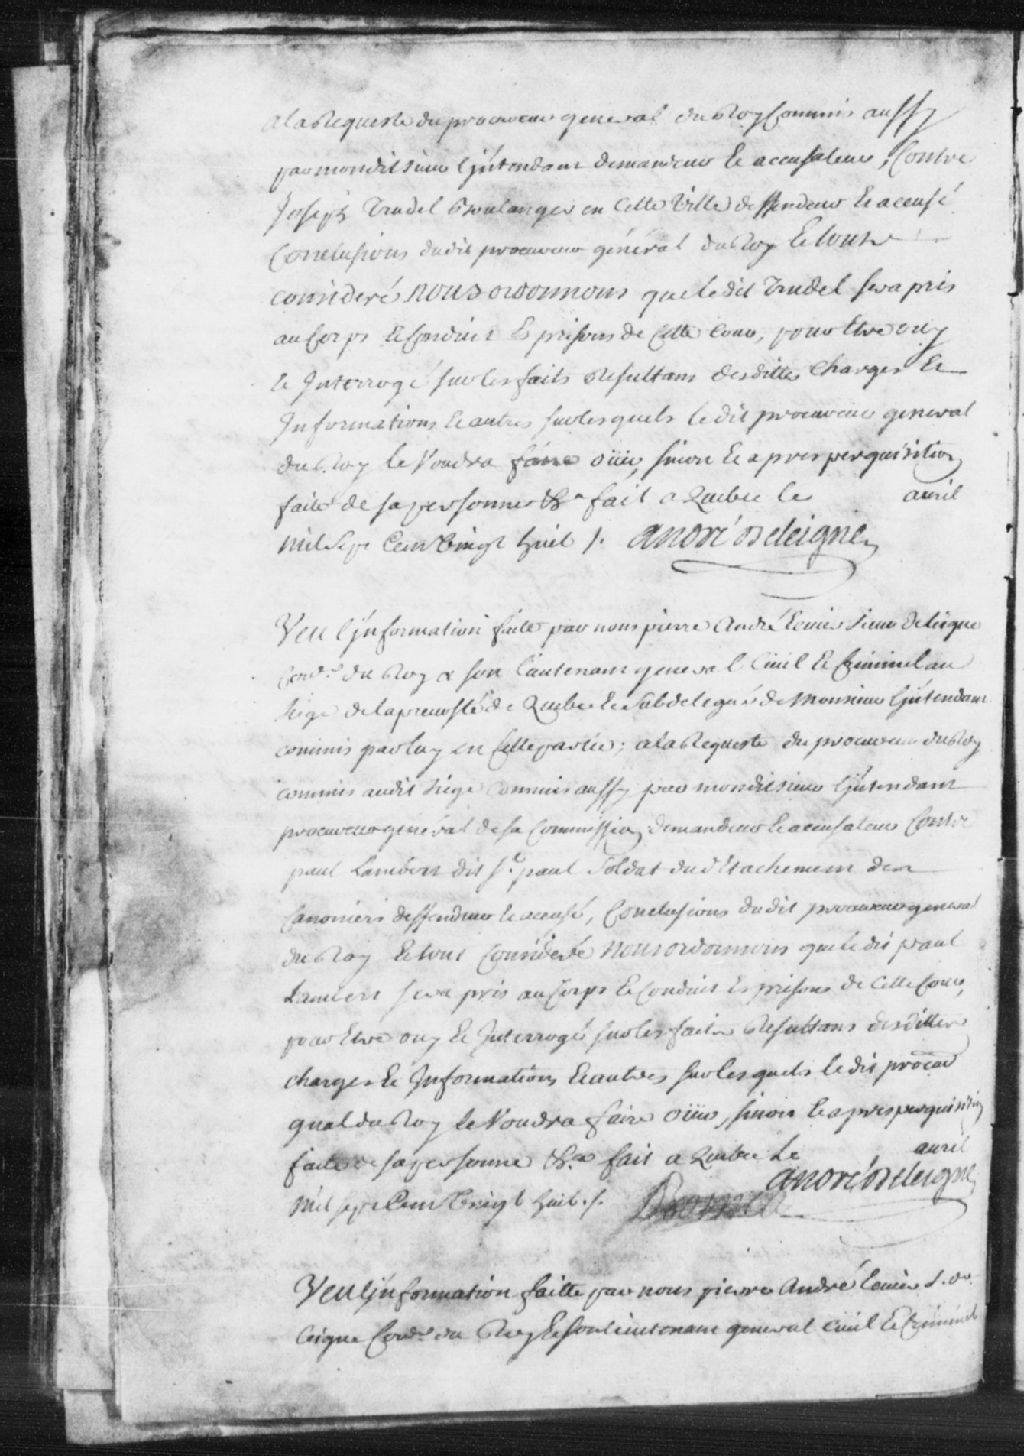 a la Requeste du procureur general du Roy Commis aussy
par mondit sieur l'jntendant demandeur et accusateur, Contre
Joseph Trudel Boulanger en Cette Ville deffendeur et accusé
Conclusions dudit procureur général du Roy Et tout
consideré nous ordonnons que ledit Trudel sera pris
au Corps et Conduit Es prisons de Cette Cour, pour Etre ouy
et Interrogé sur les faits Resultans desdittes Charges et
Informations et autres sur lesquels le dit procureur general
du Roy le Voudra faire oüir, sinon et apres perquisition
faite de sa personne &a fait a Quebec le avril
mil sept Cent Vingt huit /. André de leigne
Veu l'jnformation faite par nous pierre André Ecuier Sieur De leigne
Conr. du Roy & son Lieutenant general Ciuil et Criminel au
siege de la preuosté de Quebec et Subdelegué de Monsieur l'jntendant
commis par luy en Cette partie; a la Requeste du procureur du Roy
commis audit siege Commis aussy par mondit sieur l'jntendant
procureur general de sa Commission demandeur et accusateur Contre
paul Lambert dit St. paul Soldat du détachement des
Canoniers deffendeur et accusé, Conclusions dudit procureur general
du Roy Et tout Consideré nous ordonnons que le dit paul
Lambert sera pris au Corps et Conduit Es prisons de Cette Cour,
pour Etre ouy et Interrogé sur les faits Resultans desdittes
charges et Informations et autres sur lesquels le dit procur
gnal du Roy le Voudra faire oüir, sinon et apres perquisition
faite de sa personne &a fait a Quebec Le avril
mil sept Cent Vingt huit /. André de leigne
Veu l'jnformation faitte par nous pierre André Ecuier S. de
Leigne Conr. du Roy Et son lieutenant general Ciuil et Criminel